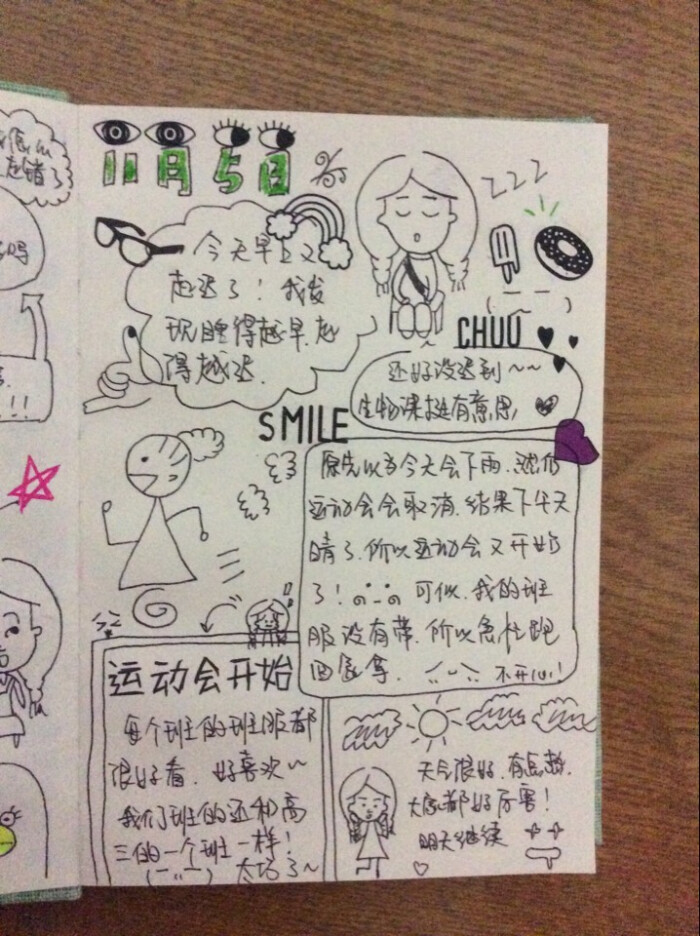 11月5日
ZZZ
今天早上又
起迟了！我发
现睡得越早起
得越迟.
CHUU
还好没迟到~~
生物课挺有意思
SMILE
原先以为今天会下雨.
运动会会取消.结果下午天
晴了.所以运动会又开始
了！可似.我的班
服没有带.所以急忙跑
回家拿.
不开心！
运动会开始
每个班的班服都
很好看.好喜欢~
我们班的还和高
三的一个班一样！
太巧了~
天气很好.有点热.
大家都好厉害！
明天继续